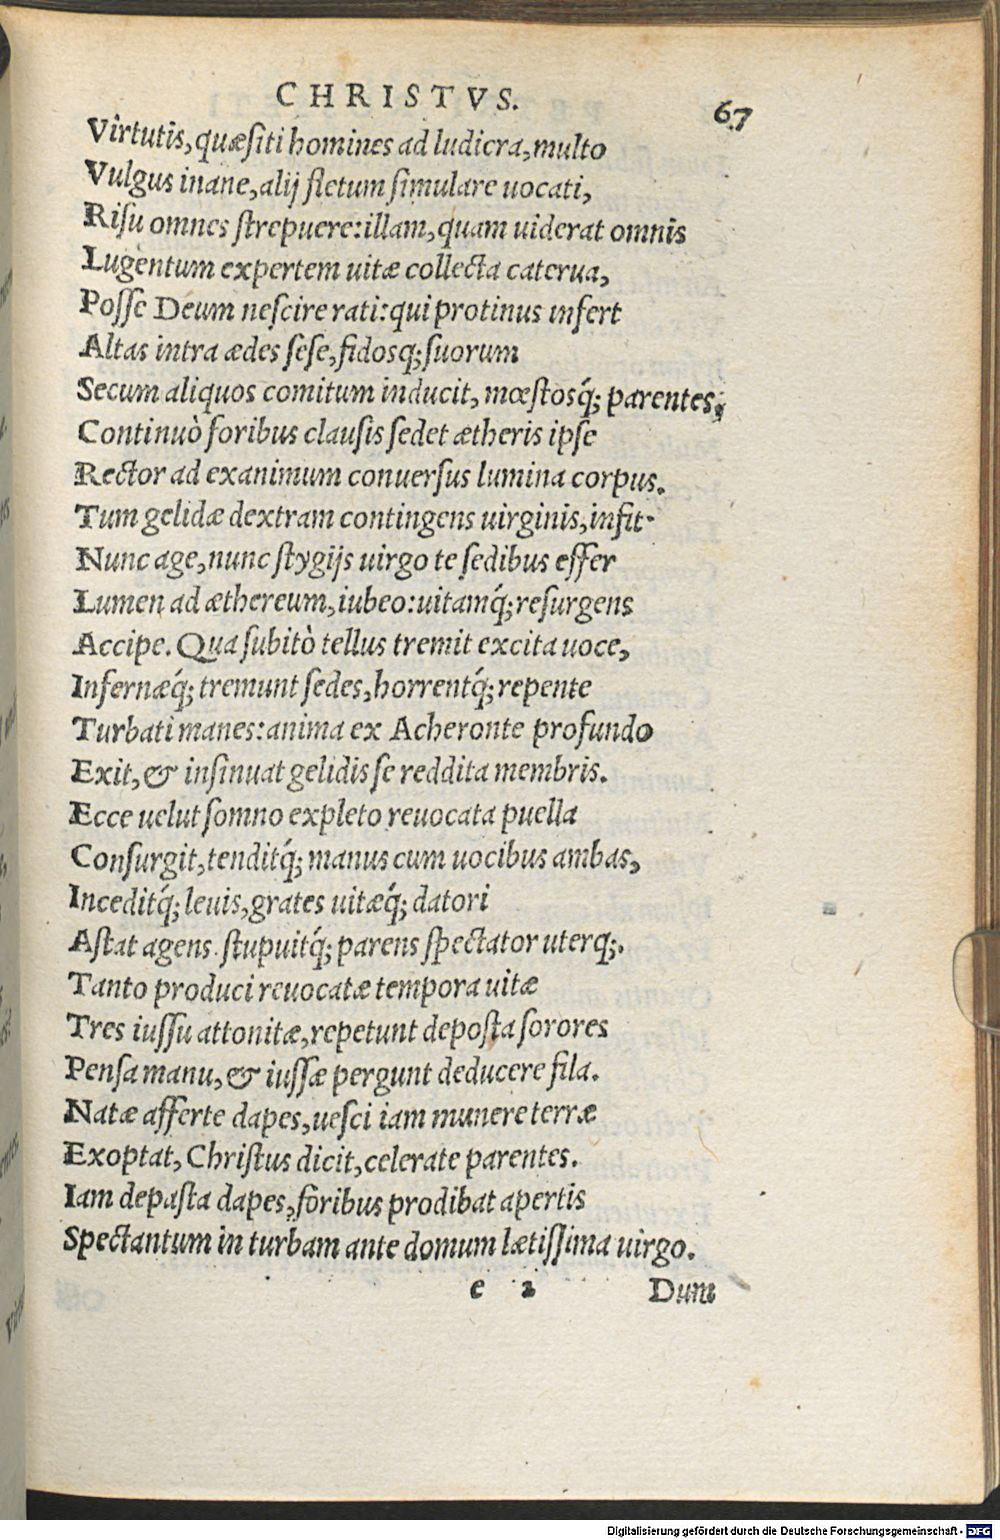 CHRISTVS. 67
Virtutis, quæſiti homines ad ludicra, multo
Vulgus inane, alij fletum ſimulare uocati,
Riſu omnes ſtrepuere: illam, quam uiderat omnis
Lugentum expertem uitæ collecta caterua,
Poſſe Deum neſcire rati: qui protinus infert
Altas intra ædes ſeſe, fidosq; ſuorum
Secum aliquos comitum inducit, mœſtosq́; parentes.
Continuò foribus clauſis ſedet ætheris ipſe
Rector ad exanimum conuerſus lumina corpus.
Tum gelidæ dextram contingens uirginis, infit·
Nunc age, nunc ſtygijs uirgo te ſedibus effer
Lumen ad æthereum, iubeo: uitamq́; reſurgens
Accipe. Qua ſubitò tellus tremit excita uoce,
Infernæq́; tremunt ſedes, horrentq́; repente
Turbati manes: anima ex Acheronte profundo
Exit, & inſinuat gelidis ſe reddita membris.
Ecce uelut ſomno expleto reuocata puella
Conſurgit, tenditq́; manus cum uocibus ambas,
Inceditq́; leuis, grates uitæq́; datori
Aſtat agens. ſtupuitq́; parens ſpectator uterq;.
Tanto produci reuocatæ tempora uitæ
Tres iuſſu attonitæ, repetunt depoſta ſorores
Penſa manu, & iuſſæ pergunt deducere fila.
Natæ afferte dapes, ueſci iam munere terræ
Exoptat, Chriſtus dicit, celerate parentes.
Iam depaſta dapes, foribus prodibat apertis
Spectantum in turbam ante domum lætiſſima uirgo.
e 2 Dum
Digitalisierung gefördert durch die Deutsche Forschungsgemeinschaft - DFG